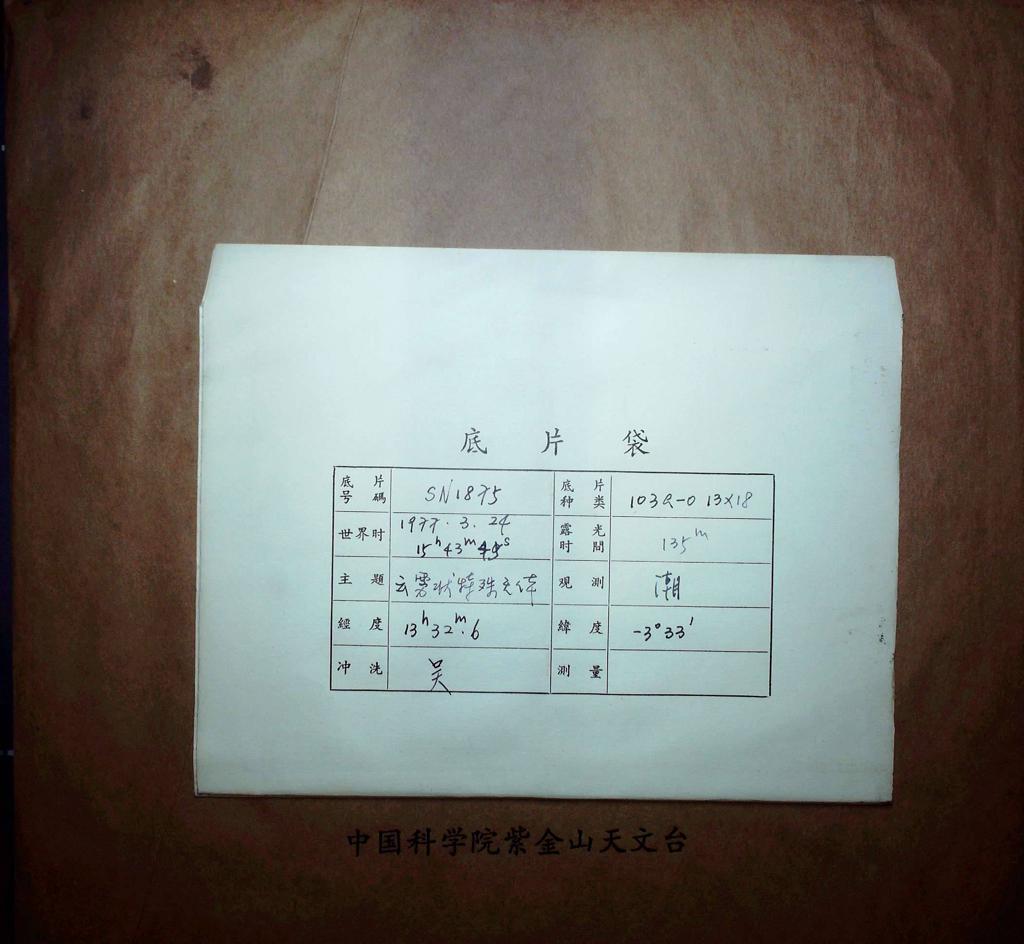 底 片 袋
底 片 号 碼 SN1875 底 片 种 类 103a-O 13×18
世界时 1977.3.24 15ʰ43ᵐ45ˢ 露 光 时 間 135ᵐ
主 題 云雾状特殊天体 观 测 潮
經 度 13ʰ32ᵐ.6 緯 度 -3°33′
冲 洗 吴 测 量
中国科学院紫金山天文台